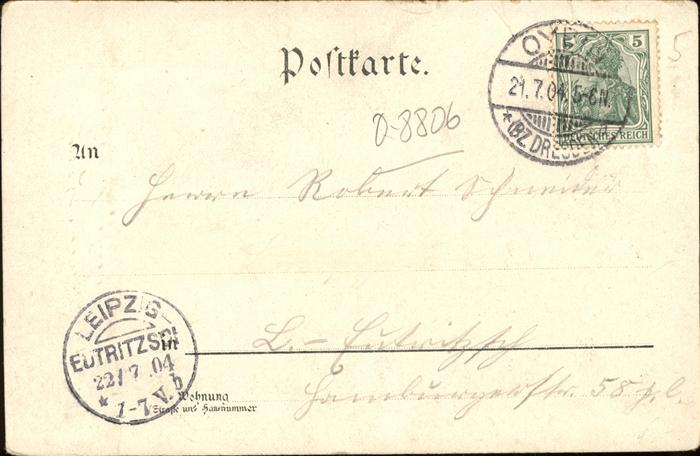 Postkarte.
5 5
DEUTSCHES REICH
OY
21.7.04 5-6N.
* (BZ. DRESDEN)
5
0-8806
An
Herrn Robert Schneider
LEIPZIG-
EUTRITZSCH
22/7 04
* 1-7 V. b
in L.- Eutritzsch
Wohnung
Straße und Hausnummer
Hamburgerstr. 58 p.l.